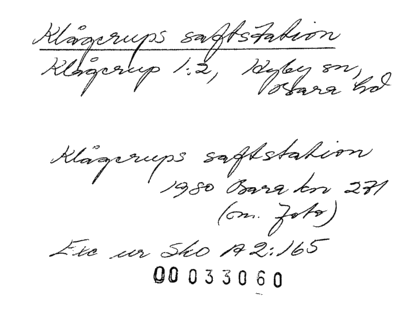 Klågerups saftstation
Klågerup 1:2, Hyby sn,
Bara hd
Klågerups saftstation
1980 Bara kn 271
(m. foto)
Exc ur Sko A2:165
00033060